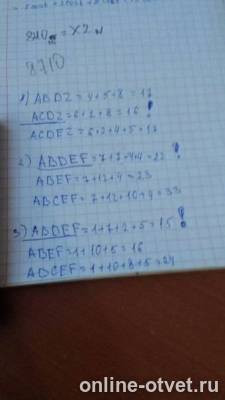 8710
1) ABDZ=4+5+8=17
ACDZ=6+2+8=16!
ACDEZ=6+2+4+5=17
2) ABDEF=7+7+4+4=22!
ABEF=7+12+4=23
ABCEF=7+12+10+4=33
3) ABDEF=1+7+2+5=15!
ABEF=1+10+5=16
ABCEF=1+10+8+5=24
online-otvet.ru